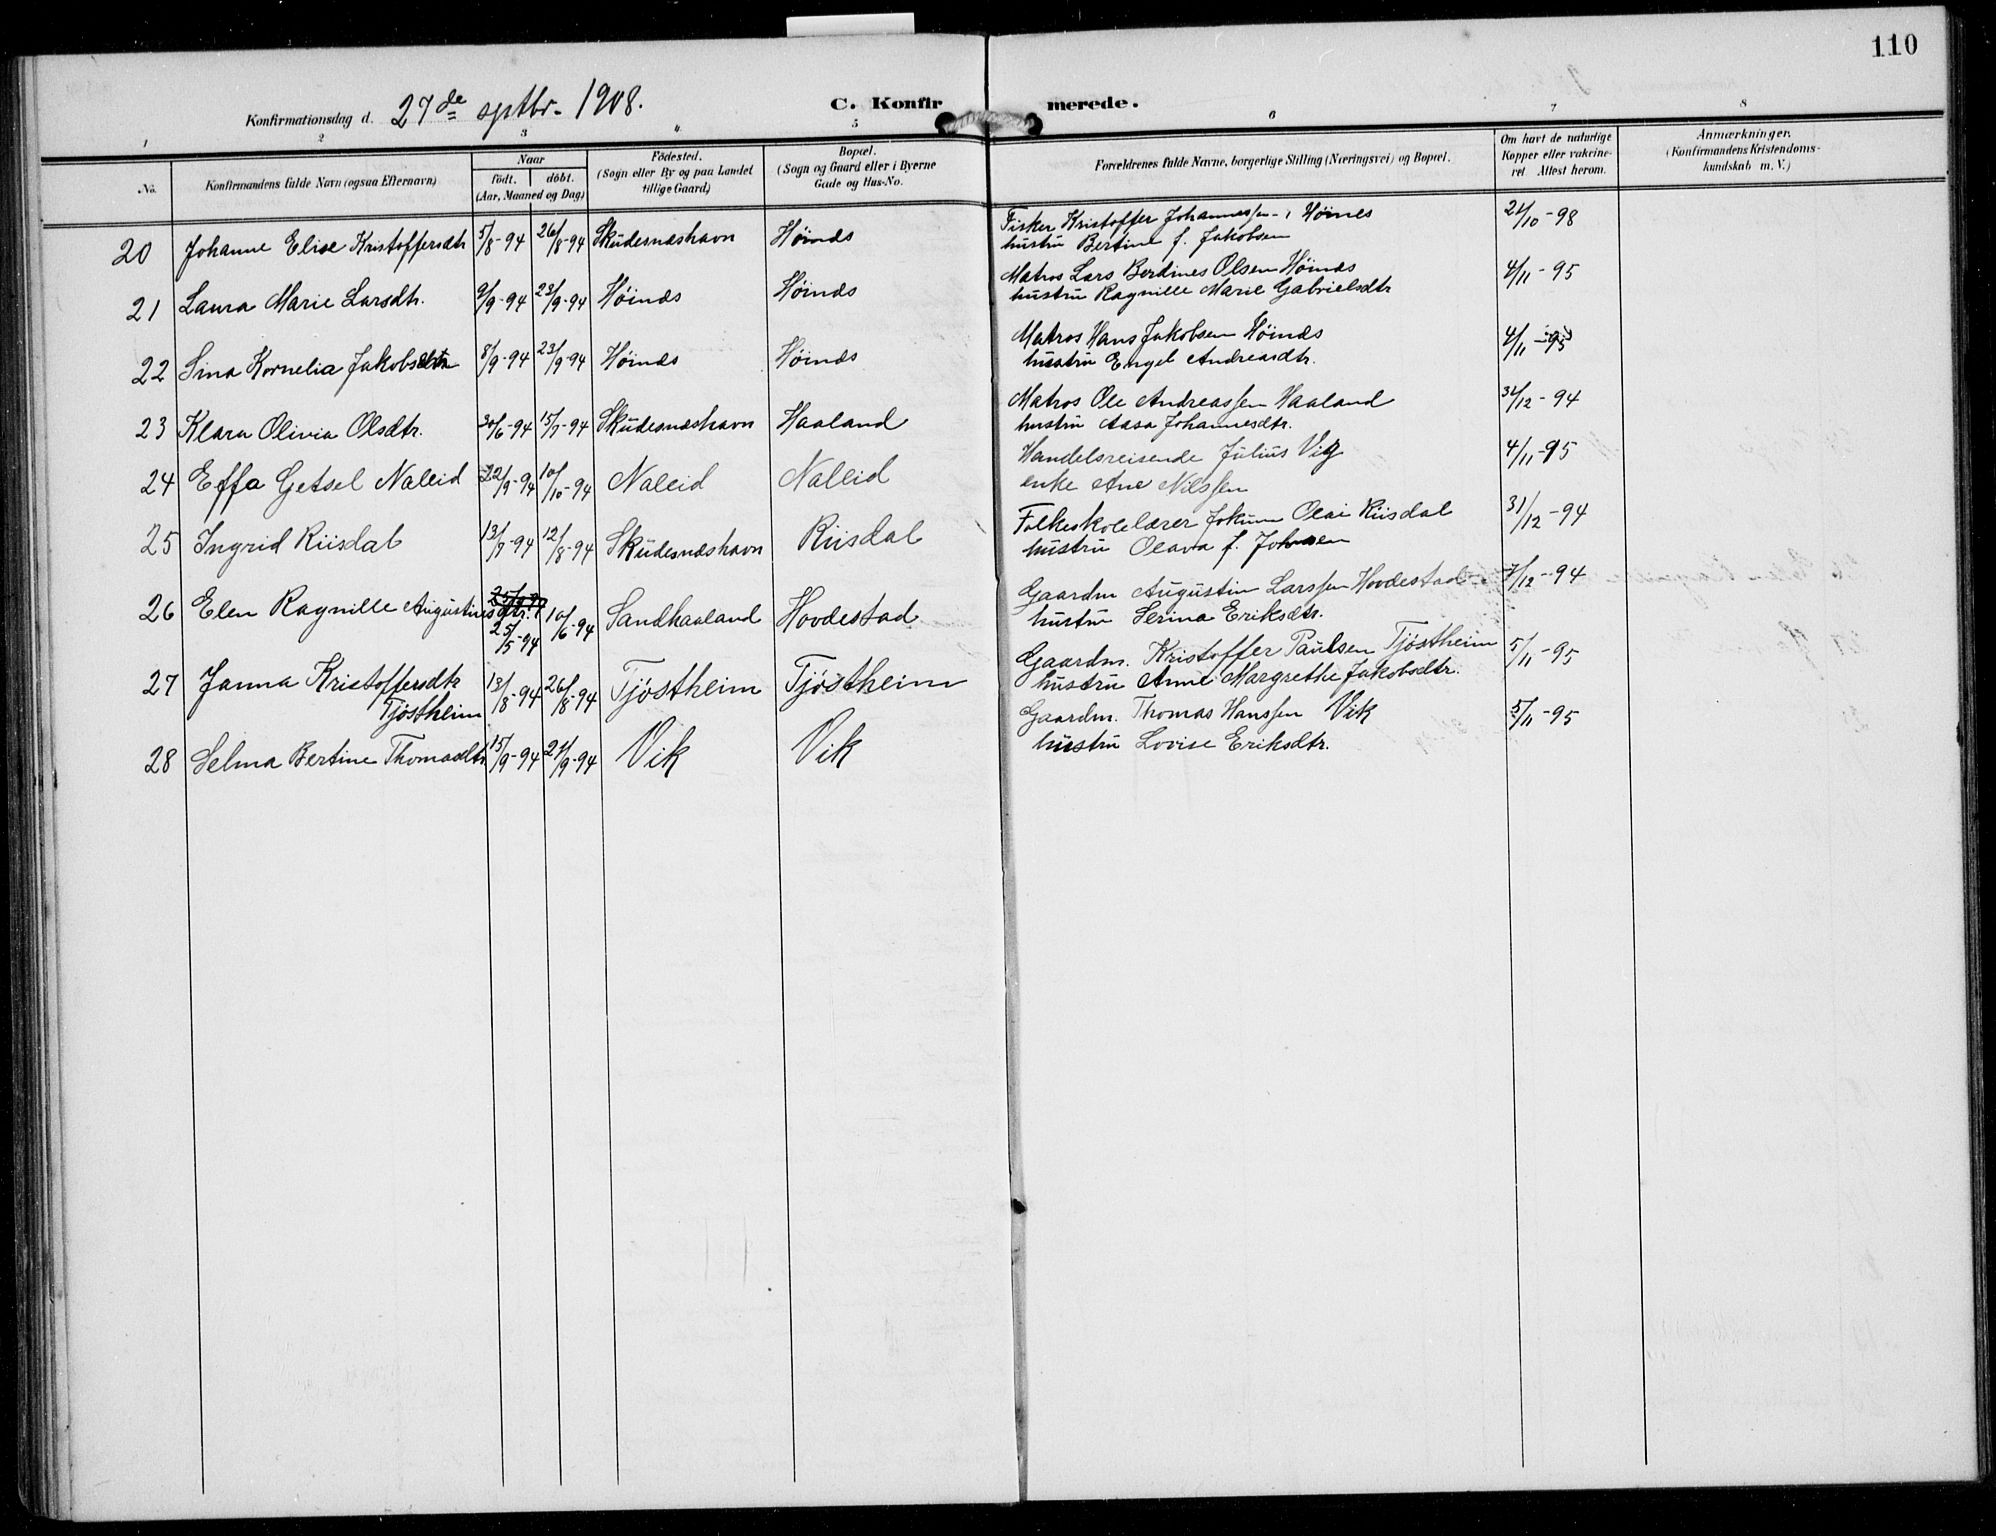 110
Konfirmationsdag d. 27de sptbr. 1908.
C. Konfirmerede.
1 2 3 4 5 6 7 8
No.
Konfirmandens fulde Navn (ogsaa Efternavn)
Naar
født. døbt.
(Aar, Maaned og Dag)
Fødested.
(Sogn eller By og paa Landet
tillige Gaard)
Bopæl.
(Sogn og Gaard eller i Byerne
Gade og Hus-No.
Forældrenes fulde Navne, borgerlige Stilling (Næringsvei) og Bopæl.
Om havt de naturlige
Kopper eller vakcine-
ret. Attest herom.
Anmærkninger.
(Konfirmandens Kristendoms-
kundskab m. V.)
20 Johanne Elise Kristoffersdtr 5/8-94 26/8-94 Skudesnæshavn Høinds Fisker Kristoffer Johannessen Høines 21/10-98
hustru Bertine f. Jakobsen
21 Laura Marie Larsdtr. 9/9-94 23/9-94 Høinds Høinds Matros Lars Berdines Olsen Høinds 4/11-95
hustru Ragnille Marie Gabrielsdtr
22 Sina Kornelia Jakobsdtr 8/9-94 23/9-94 Høinds Høinds Matros Hans Jakobsen Høinds 4/11-95
hustru Engel Andreasdtr.
23 Klara Olivia Olsdtr. 30/6-94 15/7-94 Skudesnæshavn Haaland Matros Ole Andreassen Haaland 31/12-94
hustru Aasa Johannesdtr.
24 Effa Getsel Naleid 22/9-94 10/10-94 Naleid Naleid Handelsreisende Julius Vig 4/11-95
enke Ane Nilssen
25 Ingrid Riisdal 13/7-94 12/8-94 Skudesnæshavn Riisdal Folkeskolelærer Jokum Olai Riisdal 31/12-94
hustru Olava f. Johnsen
26 Elen Ragnille Augustinesdtr. 25/5-94 10/6-94 Sandhaaland Hovdestad Gaardm Augustin Larssen Hovdestad 7/12-94
hustru Serina Eriksdtr.
27 Janna Kristoffersdtr 13/8-94 26/8-94 Tjøstheim Tjøstheim Gaardm. Kristoffer Paulsen Tjøstheim 5/11-95
Tjøstheim hustru Anne Margrethe Jakobsdtr.
28 Selma Bertine Thomasdtr 15/9-94 21/9-94 Vik Vik Gaardm. Thomas Hanssen Vik 5/11-95
hustru Lovise Eriksdtr.